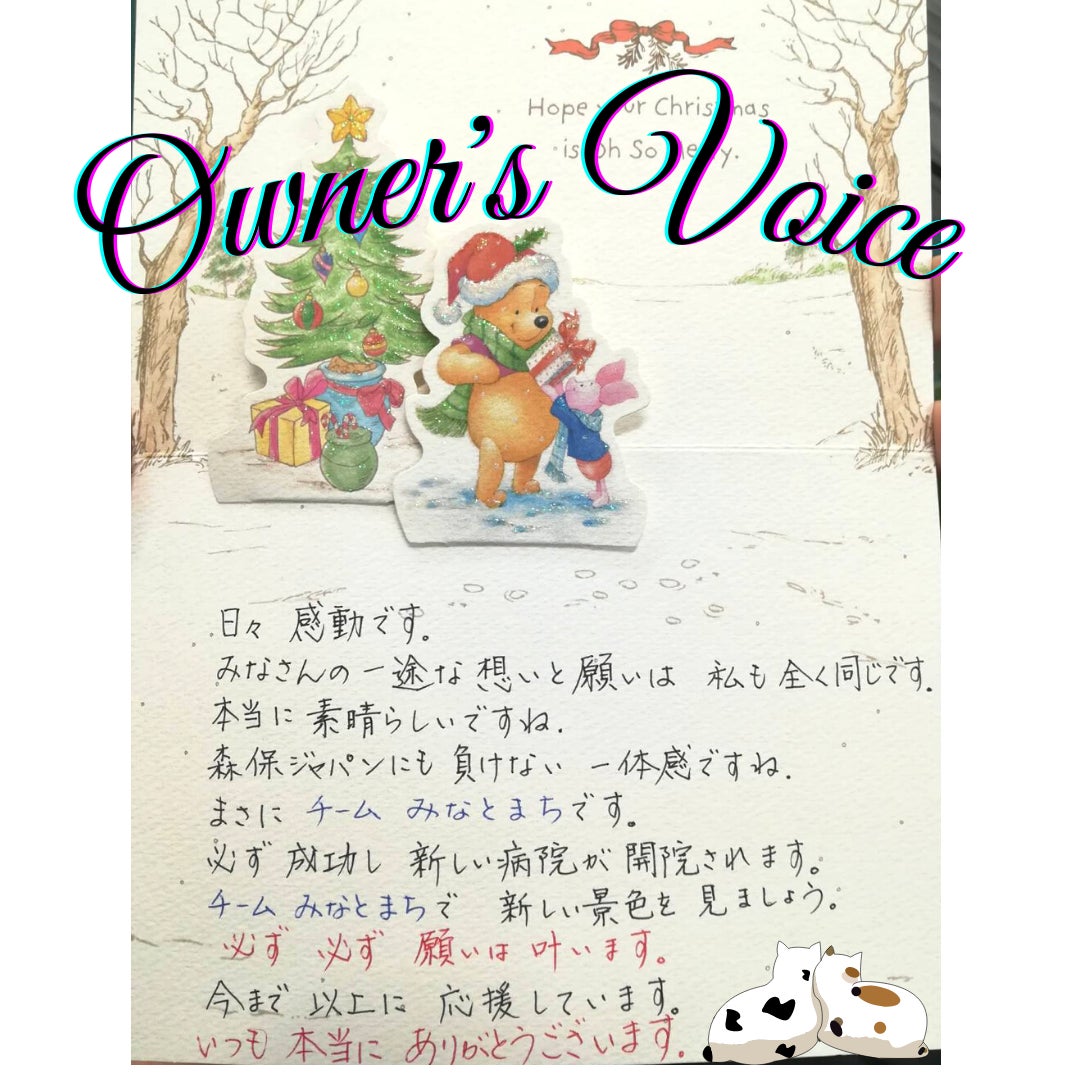 Owner's Voice
Hope your Christmas
is oh So merry.
日々 感動です。
みなさんの一途な想いと願いは 私も全く同じです.
本当に素晴らしいですね.
森保ジャパンにも負けない一体感ですね.
まさに チーム みなとまちです。
必ず成功し 新しい病院が開院されます。
チーム みなとまちで 新しい景色を見ましょう。
必ず 必ず 願いは叶います。
今まで以上に 応援しています。
いつも本当に ありがとうございます.